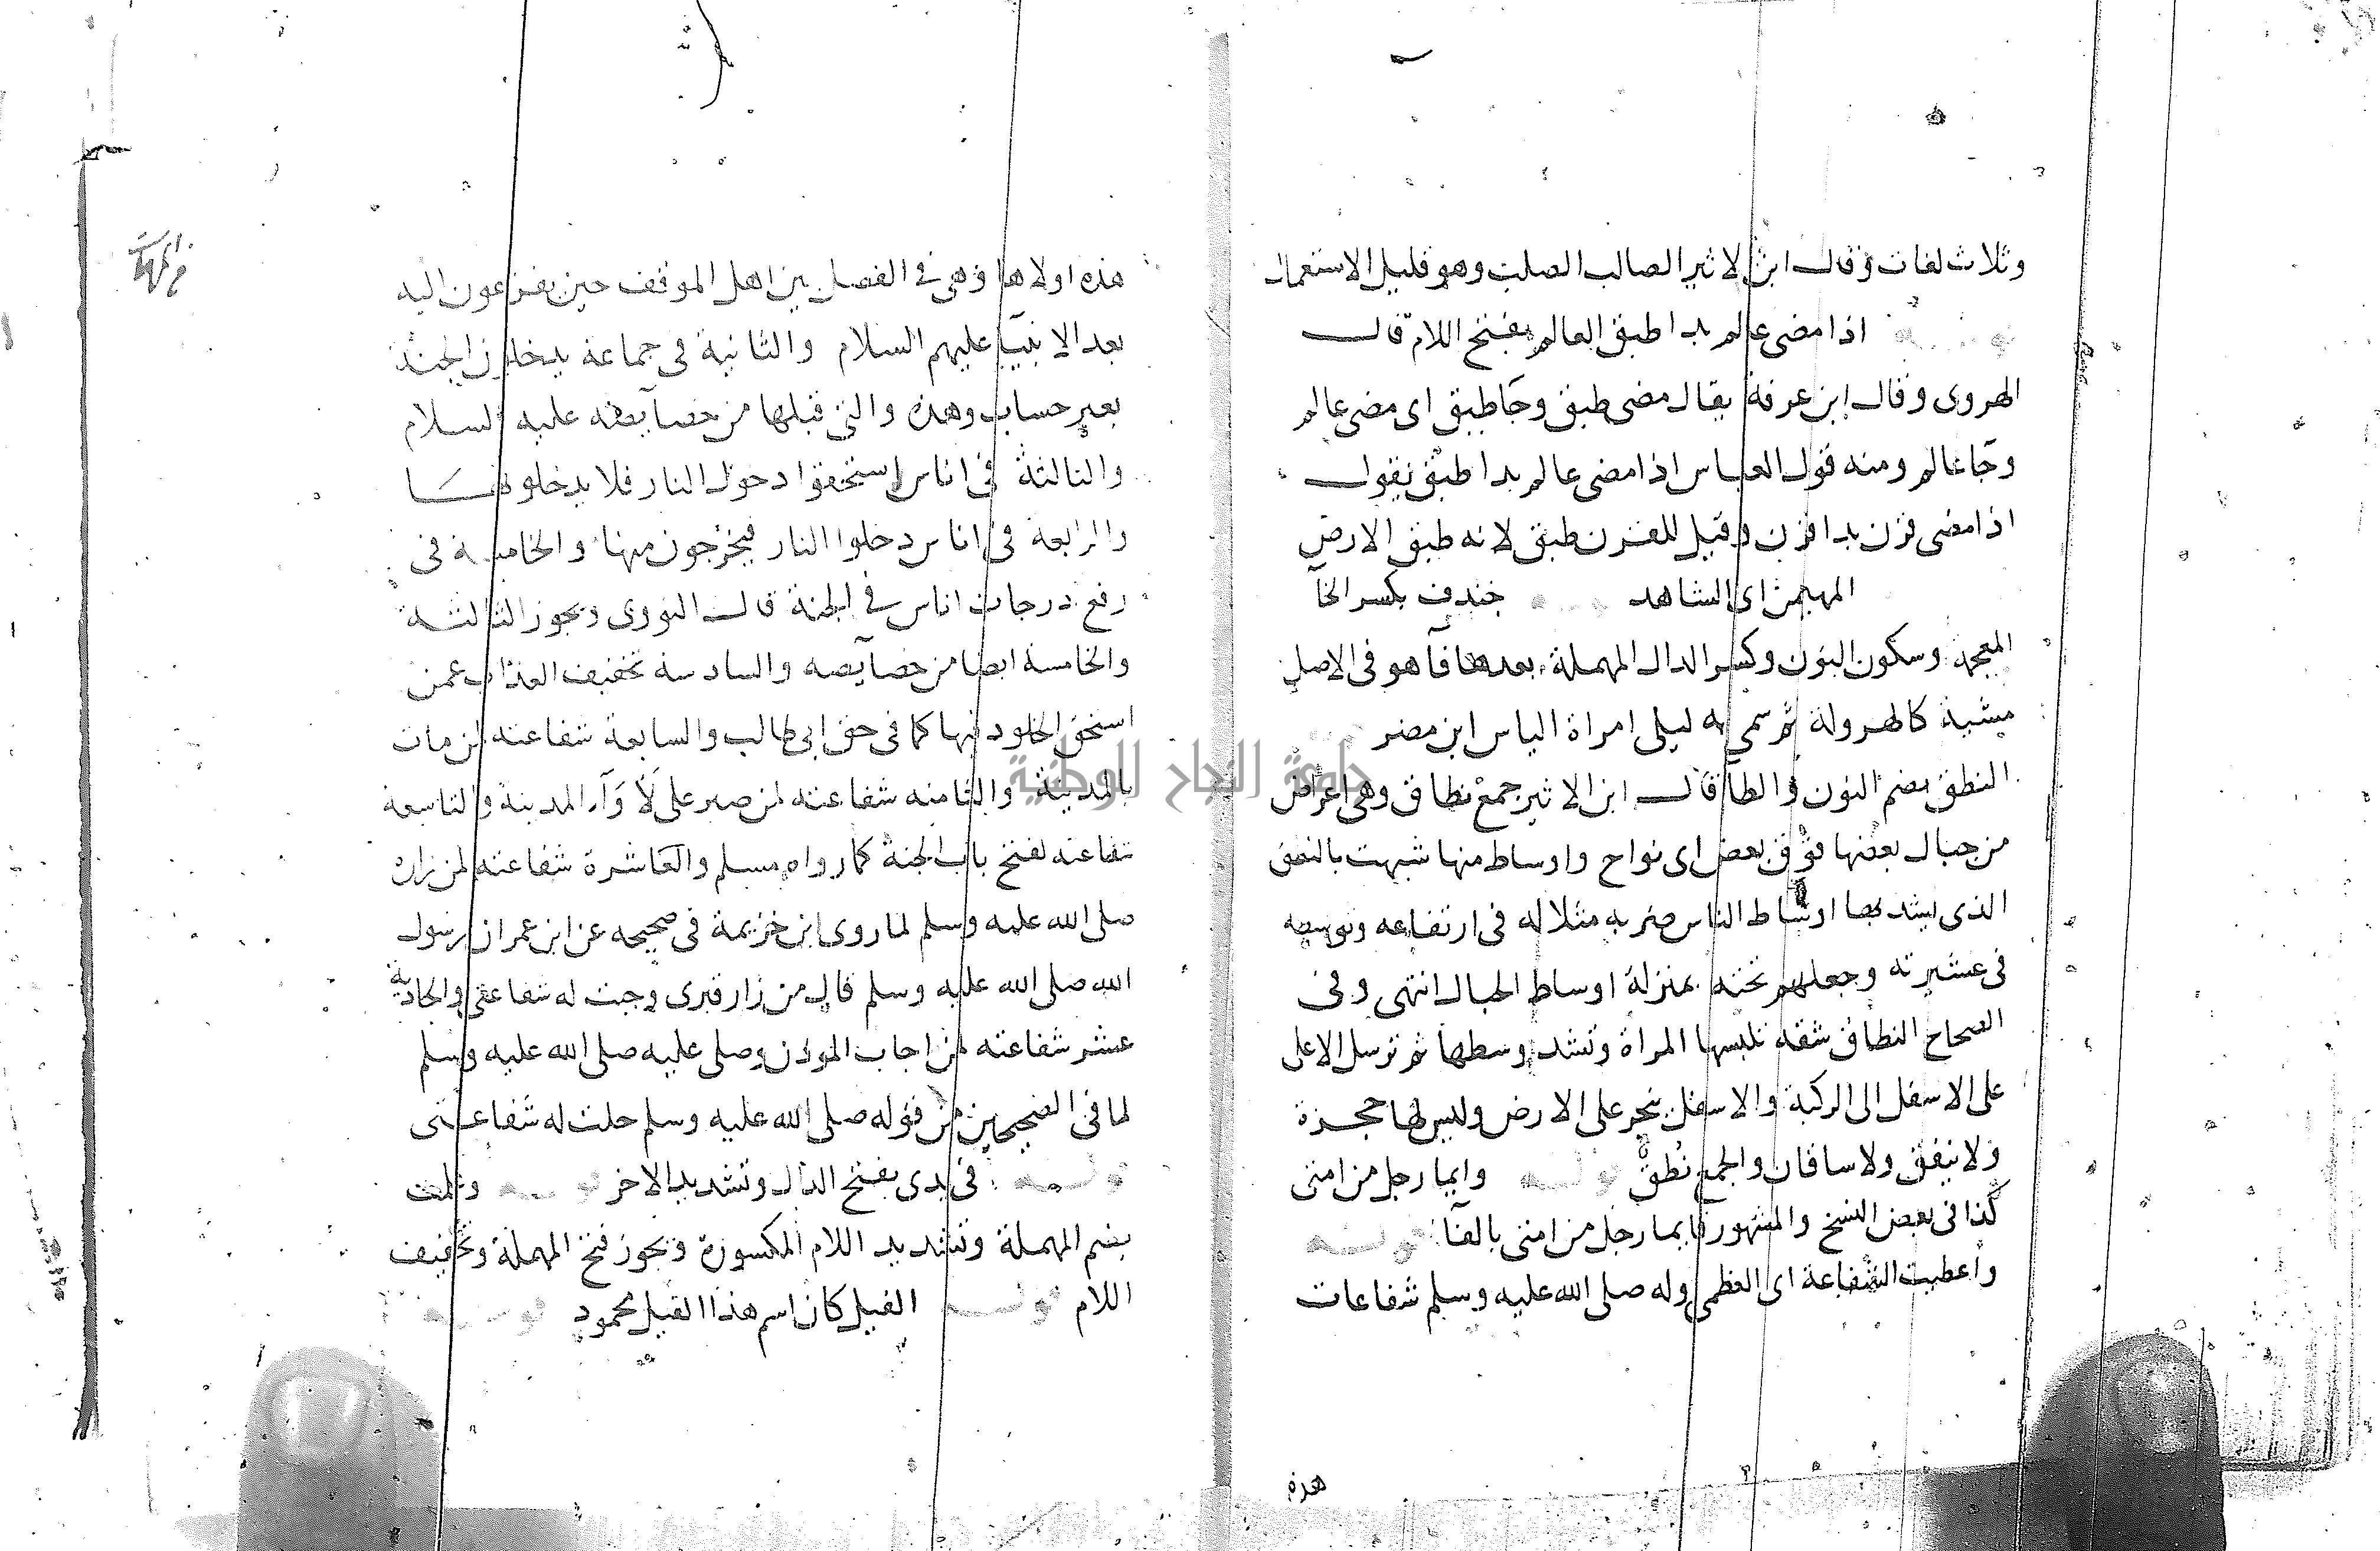 وثلاث لغات وقال ابن الاثير الصالب الصلب وهو قليل الاستعمال
قوله اذا مضى عالم بدا طبق العالم بفتح اللام قال
الهروى وقال ابن عرفة يقال مضى طبق وجآ طبق اى مضى عالم
وجآ عالم ومنه قول العباس اذا مضى عالم بدا طبق يقول
اذا مضى قرن بدا قرن وقيل للقرن طبق لانه طبق الارض
المهيمن اى الشاهد خندف بكسر الخآ
المعجمة وسكون النون وكسر الدال المهملة بعدها فآ هو فى الاصل
مشية كالهرولة ثم سمي به ليلى امراة الياس ابن مضر
النطق بضم النون والطآ قال ابن الاثير جمع نطاق وهى اعراض
من جبال بعضها فوق بعض اى نواح واوساط منها شبهت بالنطق
الذى يشد بها اوساط الناس ضربه مثلا له فى ارتفاعه وتوسطه
فى عشيرته وجعلهم تحته بمنزلة اوساط الجبال انتهى وفى
الصحاح النطاق شقه تلبسها المراة وتشد وسطها ثم ترسل الاعلى
على الاسفل الى الركبة والاسفل ينجر على الارض وليس لها حجزة
ولا نيفق ولا ساقان والجمع نطق قوله وايما رجل من امتى
كذا فى بعض النسخ والمشهور فايما رجل من امتى بالفآ قوله
واعطيت الشفاعة اى العظمى وله صلى الله عليه وسلم شفاعات
هذه
هذه اولاها وهى فى الفصل بين اهل الموقف حين يفزعون اليه
بعد الانبيآ عليهم السلام والثانية فى جماعة يدخلون الجنة
بغير حساب وهذه والتى قبلها من خصآيصه عليه السلام
والثالثة فى اناس استحقوا دخول النار فلا يدخلونها
والرابعة فى اناس دخلوا النار فيخرجون منها والخامسة فى
رفع درجات اناس فى الجنة قال النووى ويجوز الثالثة
والخامسة ايضا من خصآيصه والسادسة تخفيف العذاب عمن
استحق الخلود فيها كما فى حق ابى طالب والسابعة شفاعته لمن مات
بالمدينة والثامنه شفاعته لمن صبر على لأوآء المدينة والتاسعة
شفاعته لفتح باب الجنة كما رواه مسلم والعاشرة شفاعته لمن زاره
صلى الله عليه وسلم لما روى ابن خزيمة فى صحيحه عن ابن عمر ان رسول
الله صلى الله عليه وسلم قال من زار قبرى وجبت له شفاعتى والحادية
عشر شفاعته لمن اجاب الموذن وصلى عليه صلى الله عليه وسلم
لما فى الصحيحين من قوله صلى الله عليه وسلم حلت له شفاعتى
قوله فى يدى بفتح الدال وتشديد الاخر قوله
بضم المهملة وتشديد اللام المكسورة ويجوز فتح المهملة وتخفيف
اللام قوله الفيل كان اسم هذا الفيل محمود قوله